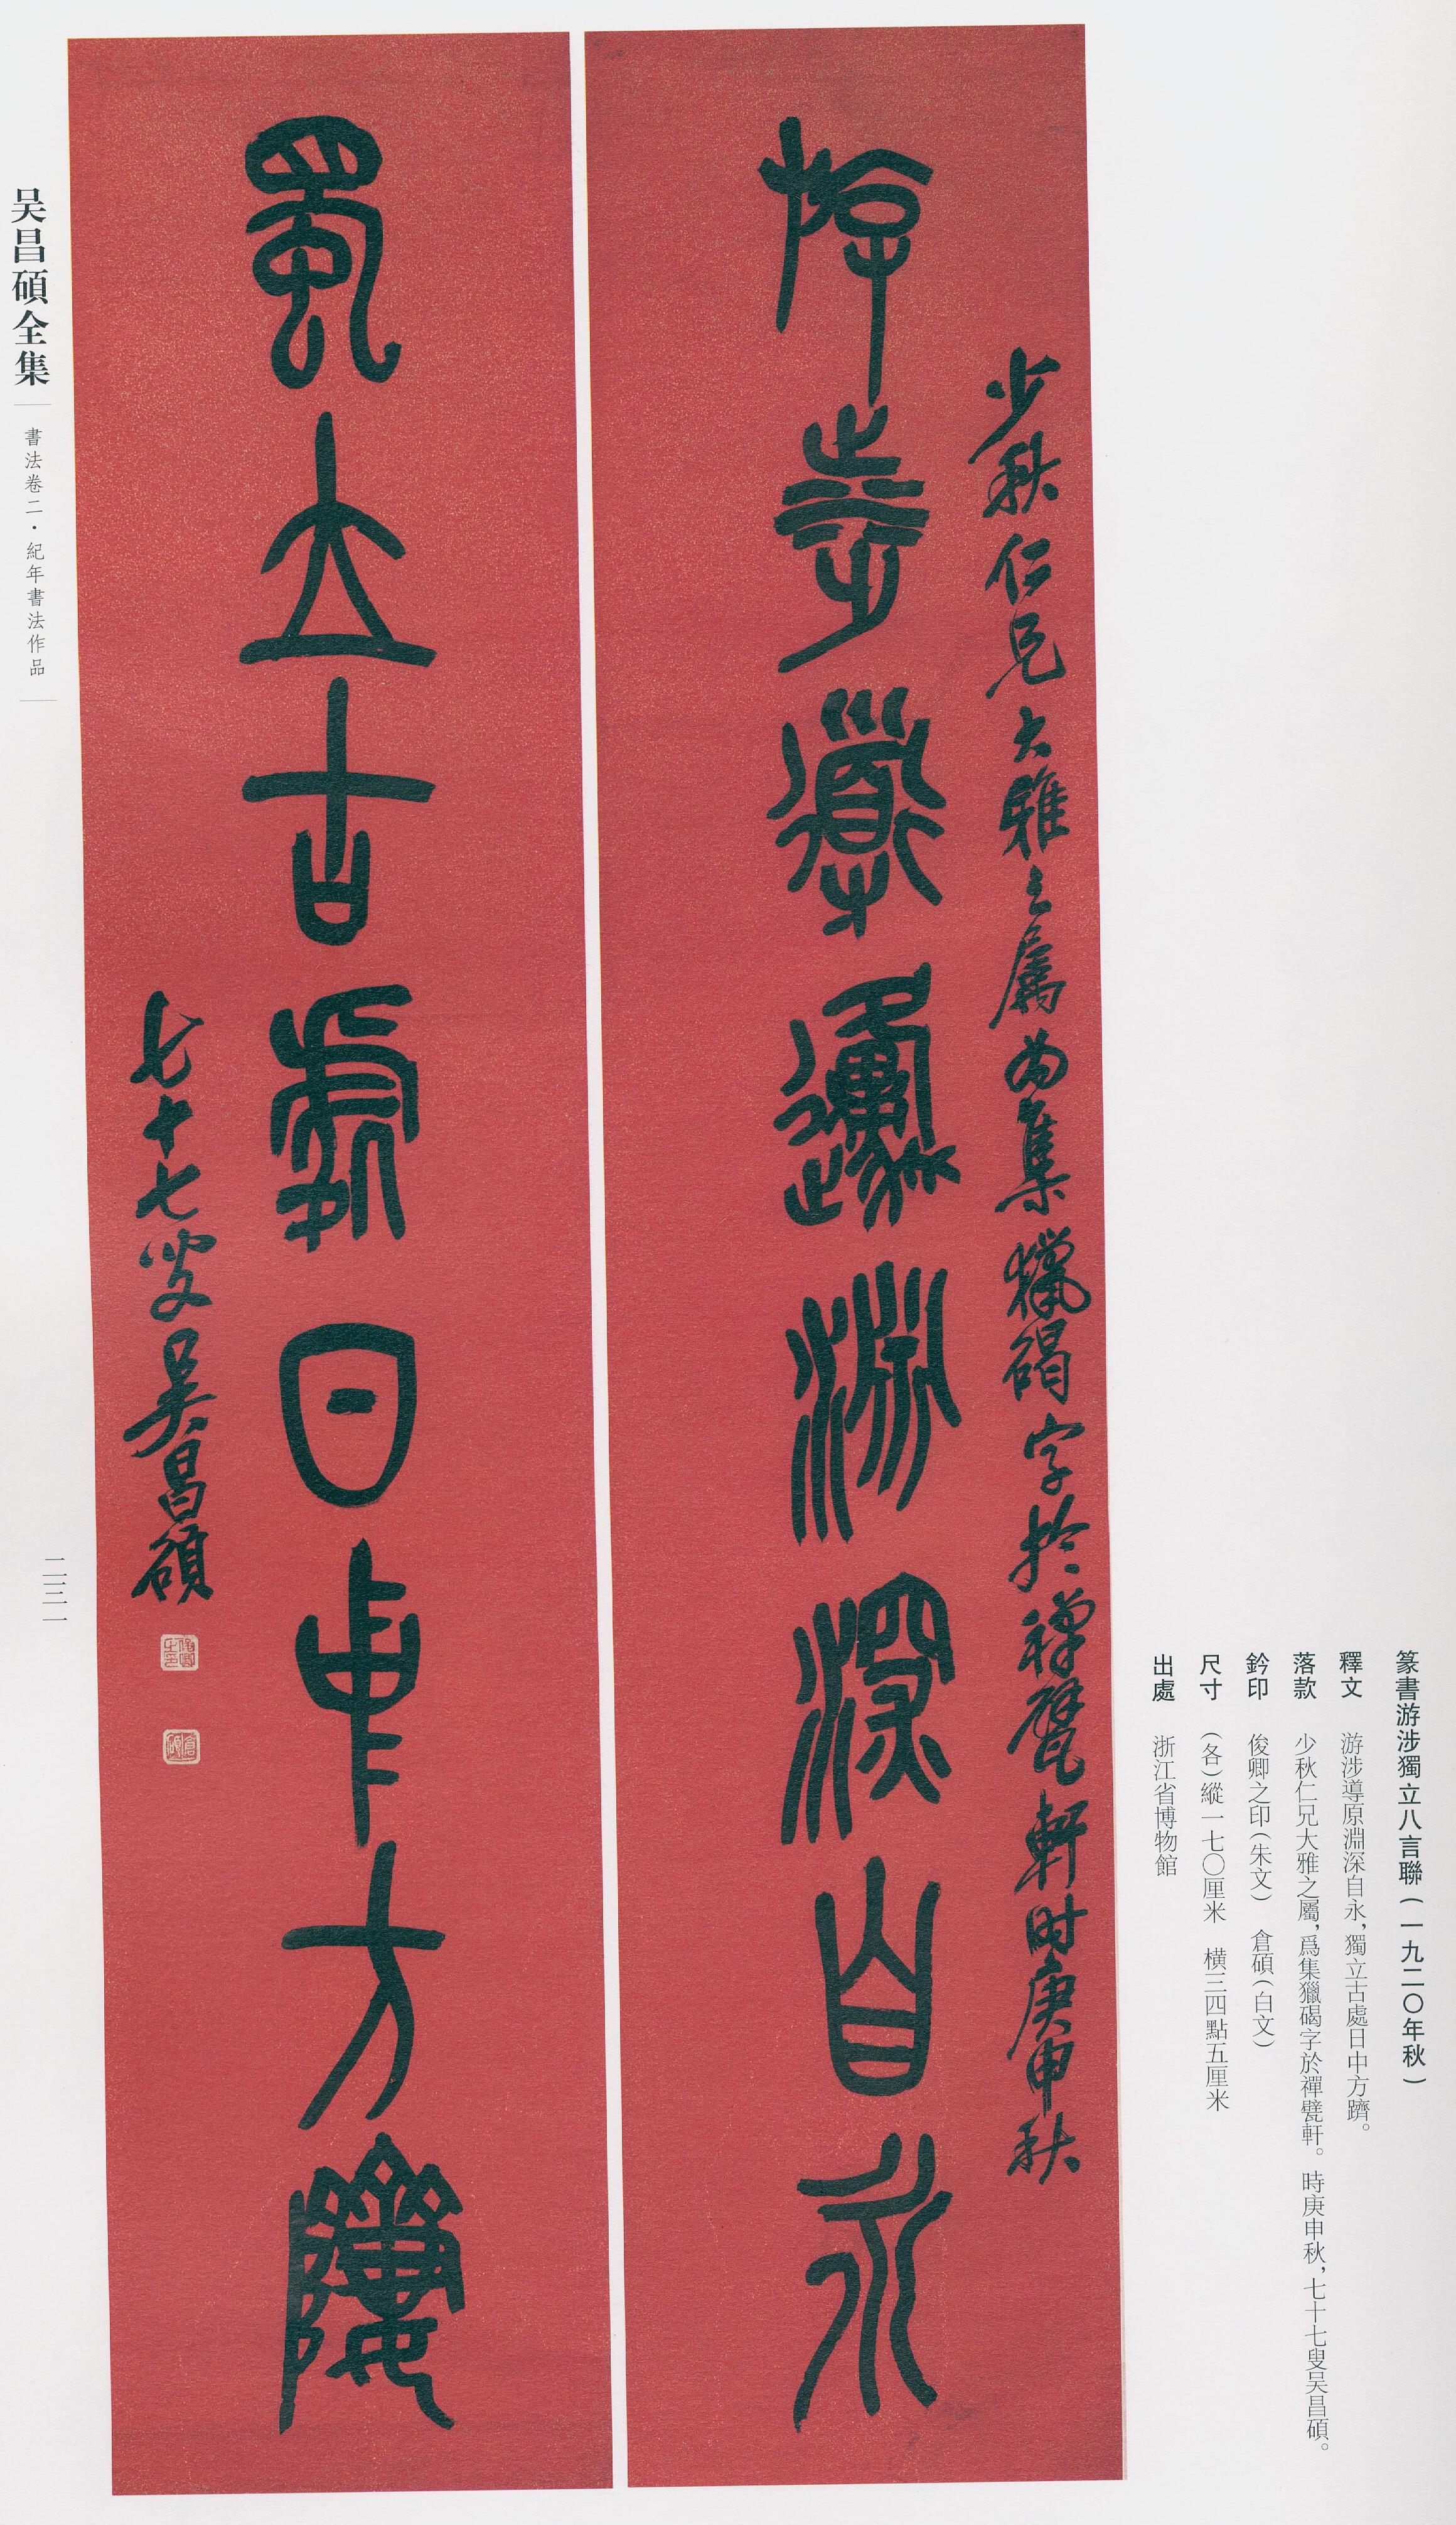 篆書游涉獨立八言聯(一九二〇年秋)
釋文 游涉導原淵深自永,獨立古處日中方躋。
落款 少秋仁兄大雅之屬,爲集獵碣字於禪甓軒。時庚申秋,七十七叟吴昌碩。
鈐印 俊卿之印(朱文) 倉碩(白文)
尺寸 (各)縱一七〇厘米 橫三四點五厘米
出處 浙江省博物館
少秋仁兄大雅之屬為集獵碣字於禪甓軒时庚申秋
游涉導原淵深自永
獨立古處日中方隮
七十七叟吳昌碩
俊卿之印
倉碩
吴昌碩全集
書法卷二·紀年書法作品
二三一